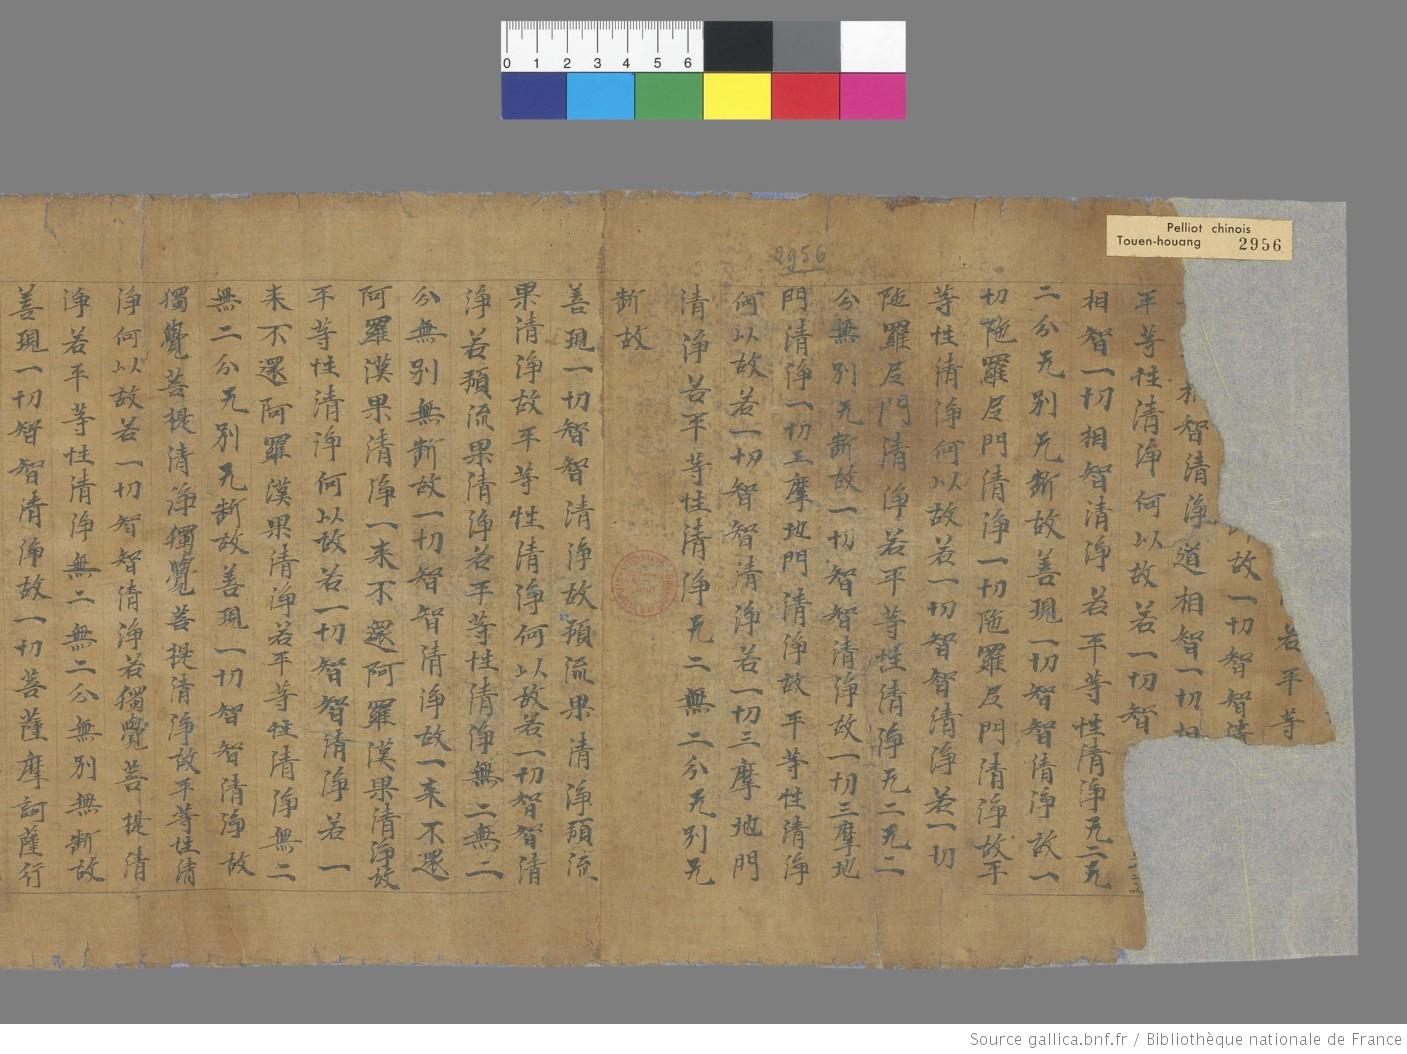 若平等
故一切智智清
智清淨道相智一切相
平等性清淨何以故若一切智
相智一切相智清淨若平等性清淨无二无
二分无別无断故善現一切智智清淨故一
切陁羅尼門清淨一切陁羅尼門清淨故平
等性清淨何以故若一切智智清淨若一切
陁羅尼門清淨若平等性清淨无二无二
分無別无断故一切智智清淨故一切三摩地
門清淨一切三摩地門清淨故平等性清淨
何以故若一切智智清淨若一切三摩地門
清淨若平等性清淨无二無二分无別无
断故
善現一切智智清淨故預流果清淨預流
果清淨故平等性清淨何以故若一切智智清
淨若預流果清淨若平等性清淨無二無二
分無別無断故一切智智清淨故一来不還
阿羅漢果清淨一来不還阿羅漢果清淨故
平等性清淨何以故若一切智智清淨若一
来不還阿羅漢果清淨若平等性清淨無二
無二分无別无断故善現一切智智清淨故
獨覺菩提清淨獨覺菩提清淨故平等性清
淨何以故若一切智智清淨若獨覺菩提清
淨若平等性清淨無二無二分無別無断故
善現一切智智清淨故一切菩薩摩訶薩行
2956
Pelliot chinois
Touen-houang 2956
0 1 2 3 4 5 6
Source gallica.bnf.fr / Bibliothèque nationale de France